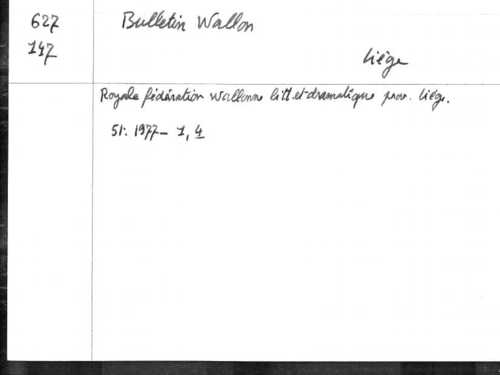 627 Bulletin Wallon
147
Liège
Royale fédération Wallonne litt. et dramatique prov. Liège.
51: 1977 - 1, 4